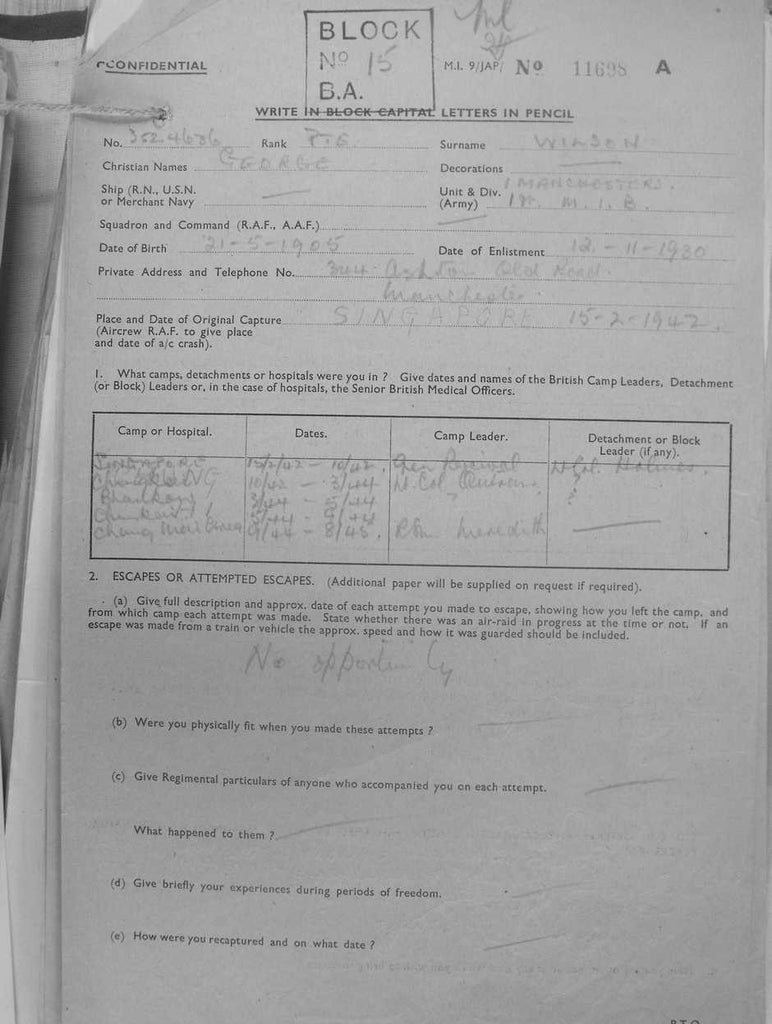 BLOCK
Nº 15
B.A.
CONFIDENTIAL
M.I. 9/JAP/ Nº 11698 A
WRITE IN BLOCK CAPITAL LETTERS IN PENCIL
No. Rank Surname WILSON
Christian Names GEORGE Decorations
Ship (R.N., U.S.N. or Merchant Navy
Unit & Div. (Army) 1 MANCHESTERS.
Squadron and Command (R.A.F., A.A.F.)
Date of Birth 21-5-1905 Date of Enlistment 12-11-1930
Private Address and Telephone No. 344 Ashton Old Road
Manchester
Place and Date of Original Capture SINGAPORE 15-2-1942.
(Aircrew R.A.F. to give place
and date of a/c crash).
1. What camps, detachments or hospitals were you in ? Give dates and names of the British Camp Leaders, Detachment
(or Block) Leaders or, in the case of hospitals, the Senior British Medical Officers.
Camp or Hospital. Dates. Camp Leader. Detachment or Block Leader (if any).
SINGAPORE 15/2/42 - 10/42. Gen Percival Lt Col. Holmes.
10/42 - 3/44 Lt. Col ?
3/44 - 5/44 ?
9/44 - 8/45. Meredith
2. ESCAPES OR ATTEMPTED ESCAPES. (Additional paper will be supplied on request if required).
(a) Give full description and approx. date of each attempt you made to escape, showing how you left the camp, and
from which camp each attempt was made. State whether there was an air-raid in progress at the time or not. If an
escape was made from a train or vehicle the approx. speed and how it was guarded should be included.
No opportunity
(b) Were you physically fit when you made these attempts ?
(c) Give Regimental particulars of anyone who accompanied you on each attempt.
What happened to them ?
(d) Give briefly your experiences during periods of freedom.
(e) How were you recaptured and on what date ?
P.T.O.